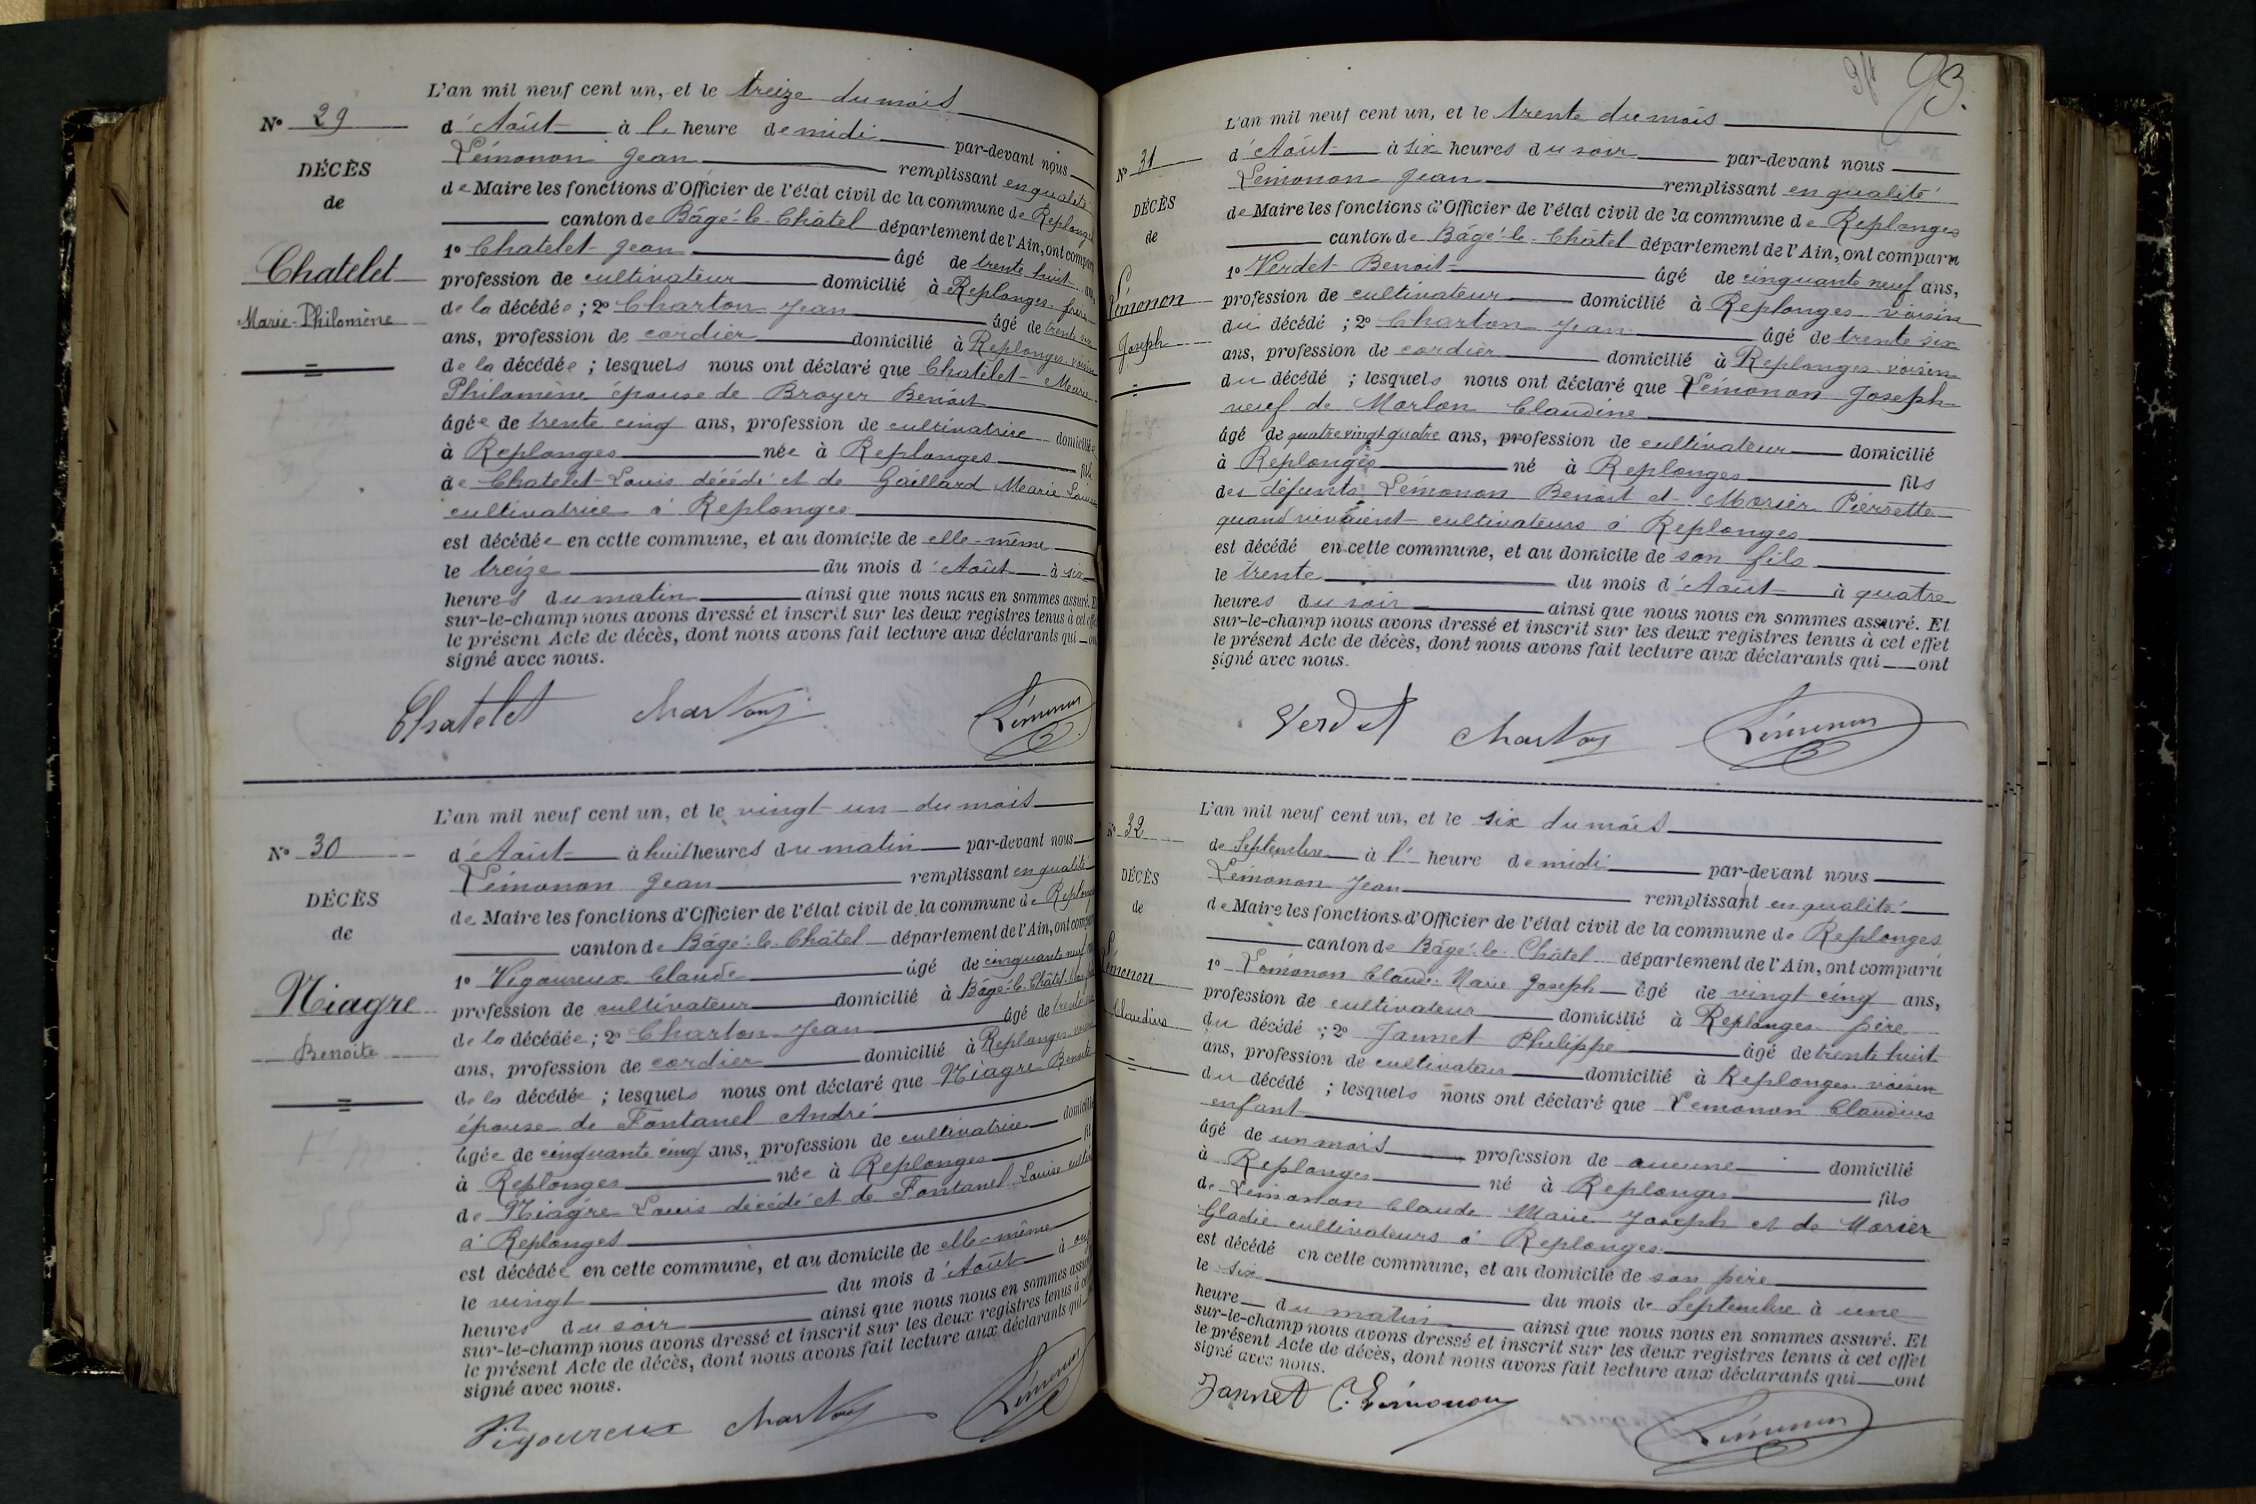 L'an mil neuf cent un, et le treize du mois
N° 29
d'Août à l' heure de midi par-devant nous
DÉCÈS
Lémonon Jean remplissant en qualité
de
de Maire les fonctions d'Officier de l'état civil de la commune de Replonges
canton de Bâgé-le-Châtel département de l'Ain, ont comparu
Chatelet
1° Chatelet Jean âgé de trente huit ans,
profession de cultivateur domicilié à Replonges frère
Marie-Philomène
de la décédée ; 2° Charton Jean âgé de trente six
ans, profession de cordier domicilié à Replonges voisin
de la décédée ; lesquels nous ont déclaré que Chatelet Marie
Philomène épouse de Broyer Benoît
âgée de trente cinq ans, profession de cultivatrice domiciliée
à Replonges née à Replonges fille
de Chatelet Louis décédé et de Gaillard Marie Louise
cultivatrice à Replonges
est décédée en cette commune, et au domicile de elle-même
le treize du mois d'Août à six
heures du matin ainsi que nous nous en sommes assuré. Et
sur-le-champ nous avons dressé et inscrit sur les deux registres tenus à cet effet
le présent Acte de décès, dont nous avons fait lecture aux déclarants qui ont
signé avec nous.
Chatelet Charton Lémonon
L'an mil neuf cent un, et le vingt un du mois
N° 30
d'Août à huit heures du matin par-devant nous
Lémonon Jean remplissant en qualité
DÉCÈS
de Maire les fonctions d'Officier de l'état civil de la commune de Replonges
de
canton de Bâgé-le-Châtel département de l'Ain, ont comparu
1° Vigoureux Claude âgé de cinquante neuf ans
Niagre
profession de cultivateur domicilié à Bâgé-le-Châtel
de la décédée ; 2° Charton Jean âgé de trente six
Benoîte
ans, profession de cordier domicilié à Replonges voisin
de la décédée ; lesquels nous ont déclaré que Niagre Benoîte
épouse de Fontanel André
âgée de cinquante cinq ans, profession de cultivatrice domiciliée
à Replonges née à Replonges fille
de Niagre Louis décédé et de Fontanel Louise
à Replonges
est décédée en cette commune, et au domicile de elle-même
le vingt du mois d'Août à
heures du soir ainsi que nous nous en sommes assuré
sur-le-champ nous avons dressé et inscrit sur les deux registres tenus à cet
le présent Acte de décès, dont nous avons fait lecture aux déclarants qui
signé avec nous.
Vigoureux Charton Lémonon
94 93.
L'an mil neuf cent un, et le trente du mois
N° 31
d'Août à six heures du soir par-devant nous
Lémonon Jean remplissant en qualité
DÉCÈS
de Maire les fonctions d'Officier de l'état civil de la commune de Replonges
de
canton de Bâgé-le-Châtel département de l'Ain, ont comparu
1° Verdet Benoit âgé de cinquante neuf ans,
Lémonon
profession de cultivateur domicilié à Replonges voisin
du décédé ; 2° Charton Jean âgé de trente six
Joseph
ans, profession de cordier domicilié à Replonges voisin
du décédé ; lesquels nous ont déclaré que Lémonon Joseph
veuf de Morlon Claudine
âgé de quatre vingt quatre ans, profession de cultivateur domicilié
à Replonges né à Replonges fils
des défunts Lémonon Benoit et Morier Pierrette
quand vivaient cultivateurs à Replonges
est décédé en cette commune, et au domicile de son fils
le trente du mois d'Août à quatre
heures du soir ainsi que nous nous en sommes assuré. Et
sur-le-champ nous avons dressé et inscrit sur les deux registres tenus à cet effet
le présent Acte de décès, dont nous avons fait lecture aux déclarants qui ont
signé avec nous.
Verdet Charton Lémonon
L'an mil neuf cent un, et le six du mois
N° 32
de Septembre à l' heure de midi par-devant nous
DÉCÈS
Lémonon Jean remplissant en qualité
de
de Maire les fonctions d'Officier de l'état civil de la commune de Replonges
canton de Bâgé-le-Châtel département de l'Ain, ont comparu
Lémonon
1° Lémonon Claude Marie Joseph âgé de vingt cinq ans,
profession de cultivateur domicilié à Replonges père
Claudius
du décédé ; 2° Jannet Philippe âgé de trente huit
ans, profession de cultivateur domicilié à Replonges voisin
du décédé ; lesquels nous ont déclaré que Lémonon Claudius
enfant
âgé de un mois profession de aucune domicilié
à Replonges né à Replonges fils
de Lémonon Claude Marie Joseph et de Morier
Gladie cultivateurs à Replonges
est décédé en cette commune, et au domicile de son père
le six du mois de Septembre à une
heure du matin ainsi que nous nous en sommes assuré. Et
sur-le-champ nous avons dressé et inscrit sur les deux registres tenus à cet effet
le présent Acte de décès, dont nous avons fait lecture aux déclarants qui ont
signé avec nous.
Jannet C. Lémonon Lémonon